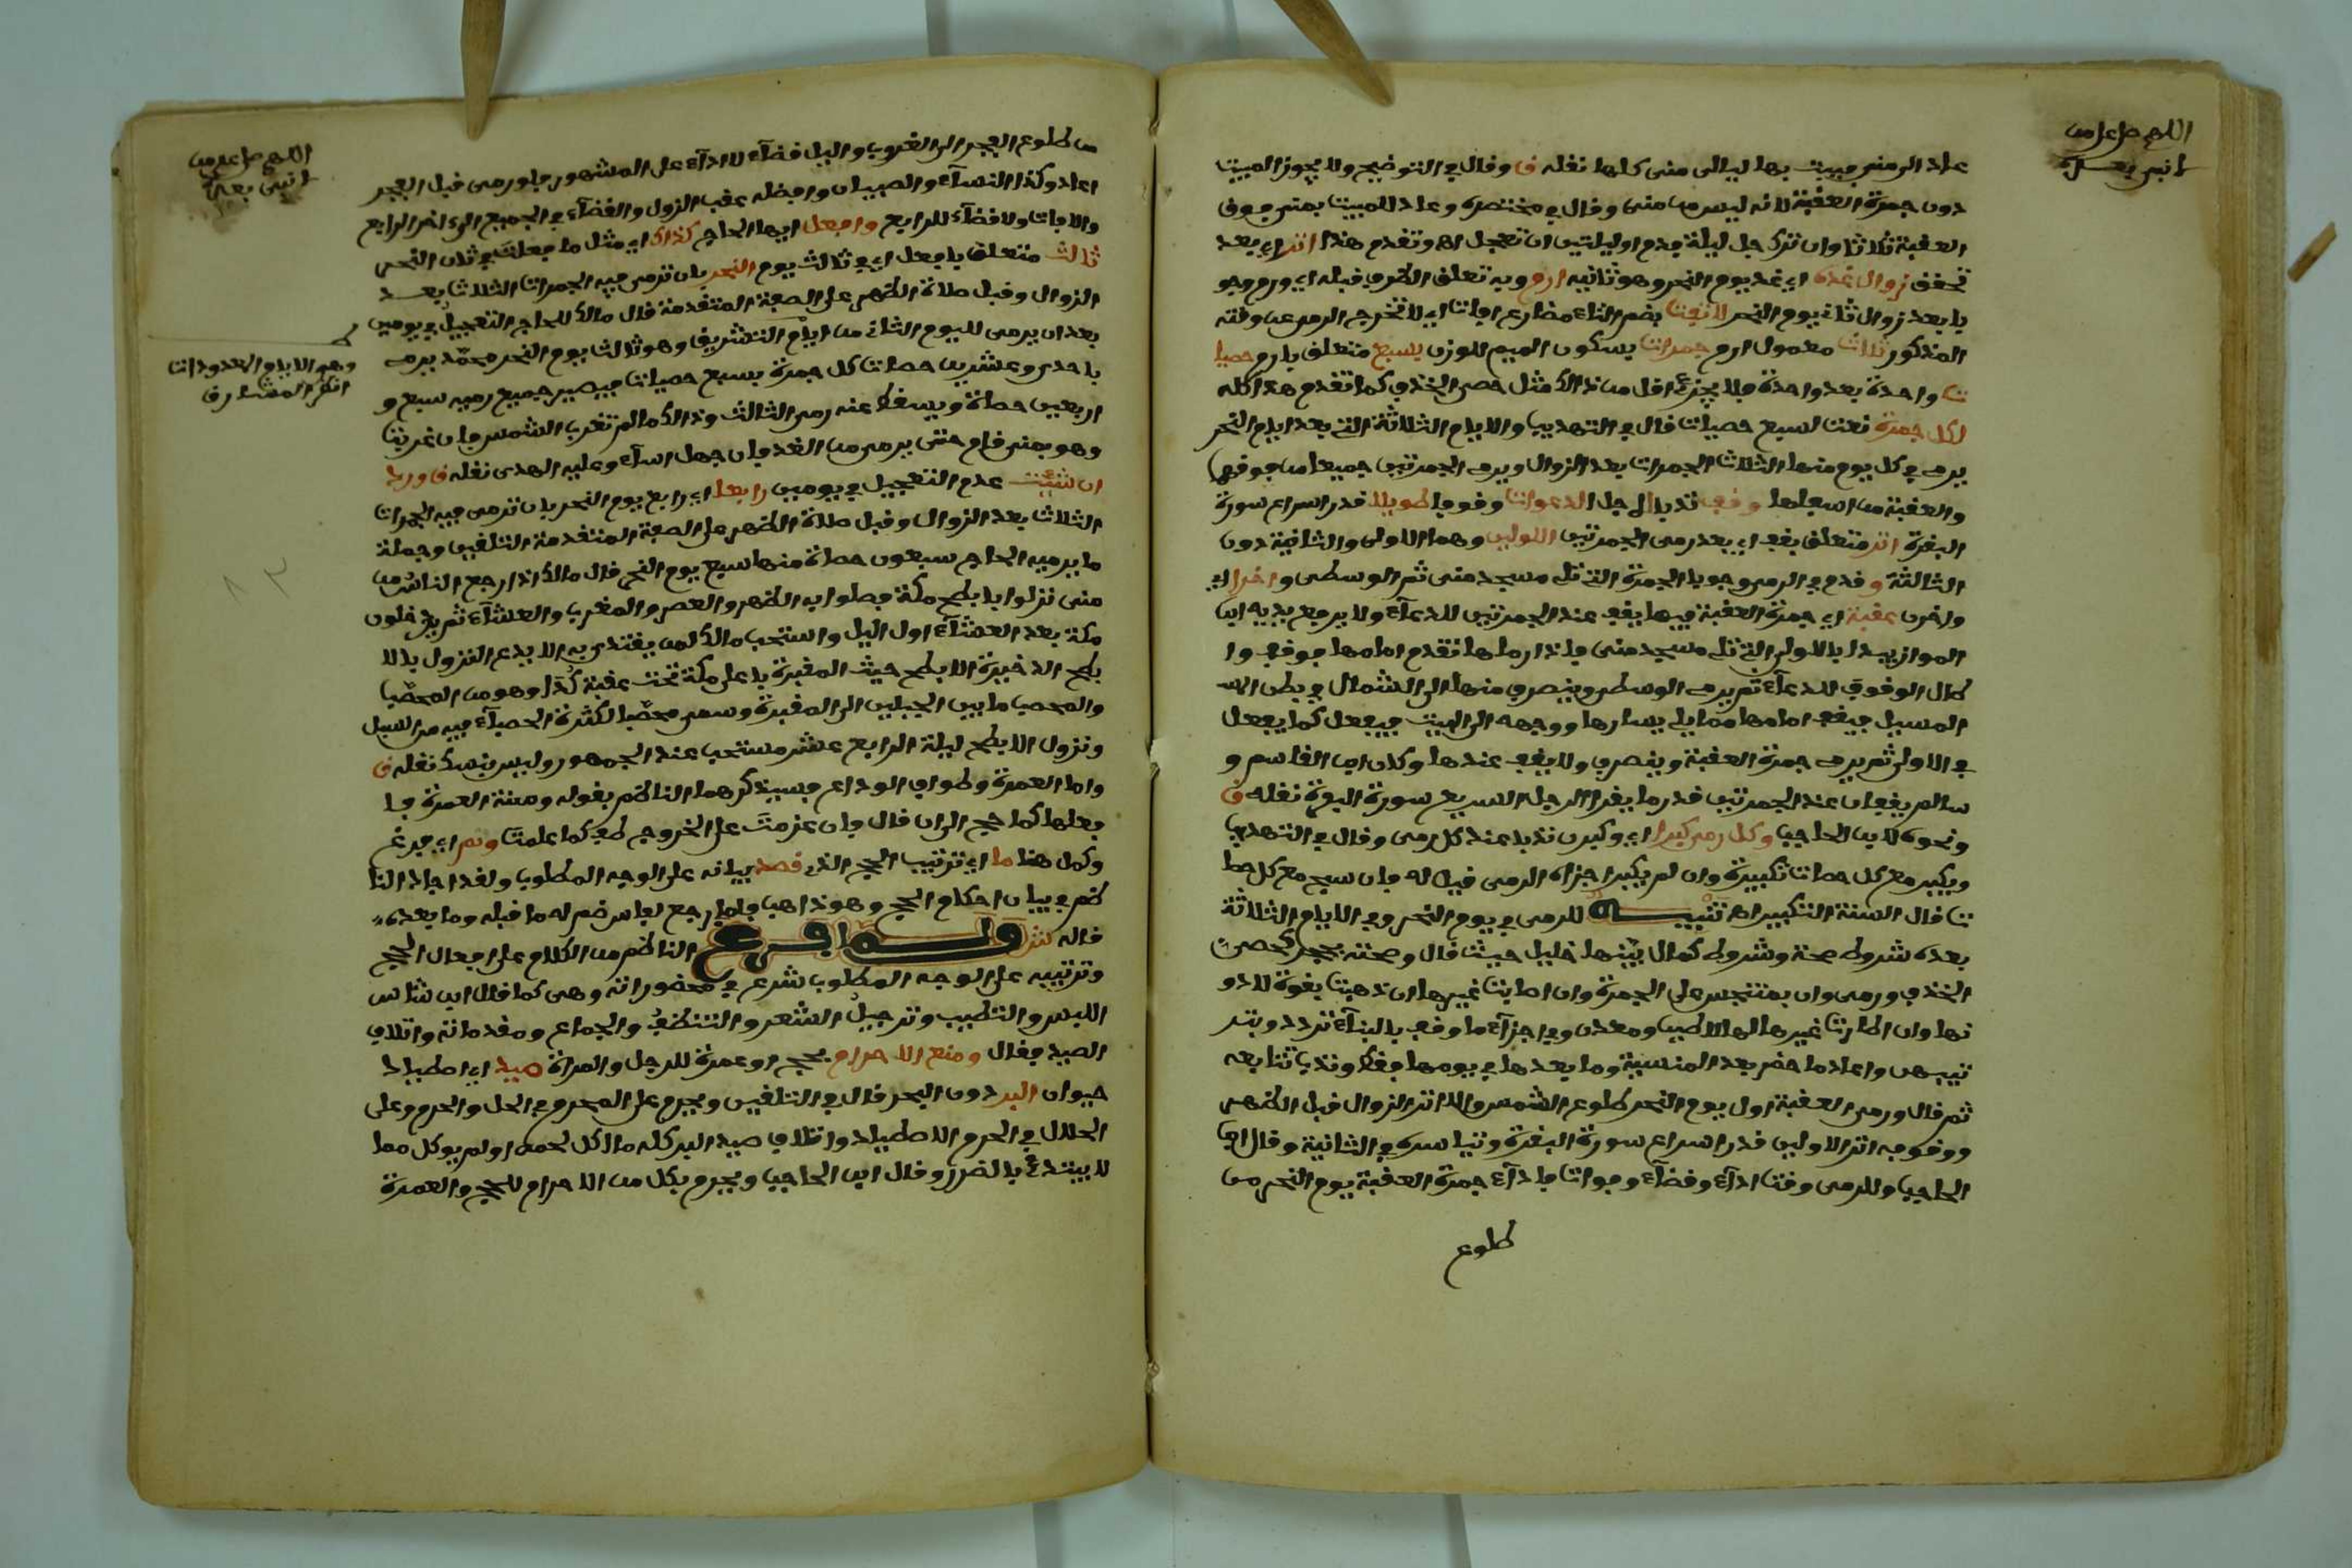 اللهم صل على من
لا نبي بعده
عاد الى منى فيبيت بها ليالى منى كلها نقله ق وقال في التوضيح ولا يجوز المبيت
دون جمرة العقبة لانه ليس من منى وقال في مختصره وعاد للمبيت بمنى فوق
العقبة ثلاثا وان ترك جل ليلة فدم او ليلتين ان تعجل اه وتقدم هذا اثر اي بعد
تحقق زوال غده اي غد يوم النحر وهو ثانيه ارم وبه تعلق الظرف قبله اي ورم وجو
با بعد زوال ثاني يوم النحر لا تفت بضم التاء مضارع افات اي لا تخرج الرمي عن وقته
المذكور ثلاث معمول ارم جمرات بسكون الميم للوزن بسبع متعلق بارم حصيا
ت واحدة بعد واحدة فلا يجزئ اقل من ذالك مثل حصى الخذف كما تقدم هذا كله
لكل جمرة نعت لسبع حصيات قال في التهذيب والايام الثلاثة التي بعد ايام النحر
يرمي في كل يوم منها الثلاث الجمرات بعد الزوال ويرمي الجمرتين جميعا من فوقها
والعقبة من اسفلها وقف ندبا لاجل الدعوات وقوفا طويلا قدر اسراع سورة
البقرة اثر متعلق بقف اي بعد رمى الجمرتين الاولين وهما الاولى والثانية دون
الثالثة وقدم في الرمي وجوبا الجمرة التي تلي مسجد منى ثم الوسطى واخرا اي
واخرن عقبة اي جمرة العقبة فيها يقف عند الجمرتين للدعاء ولا يرفع يديه ابن
المواز يبدا بالاولى التي تلي مسجد منى فاذا رماها تقدم امامها فوقف وا
طال الوقوف للدعاء ثم يرمي الوسطى وينصرف منها الى الشمال في بطن المسـ
المسيل فيقف امامها مما يلي يسارها ووجهه الى البيت فيفعل كما يفعل
في الاولى ثم يرمي جمرة العقبة وينصرف ولا يقف عندها وكان ابن القاسم و
سالم يقفان عند الجمرتين قدر ما يقرا الرجل السريع سورة البقرة نقله ق
ونحوه لابن الحاجب وكل رمي كبرا اي وكبرن ندبا عند كل رمى وقال في التهذيب
ويكبر مع كل حصات تكبيرة وان لم يكبر اجزاه الرمى قيل له فان سبح مع كل حصا
ت قال السنة التكبير اه تنبيـــه للرمى في يوم النحر وفي الايام الثلاثة
بعده شروط صحة وشروط كمال بينها خليل حيث قال وصحته بحجر كحصى
الخذف ورمى وان بمتنجس على الجمرة وان اصابت غيرها ان ذهبت بقوة لا دو
نها وان اطارت غيرها لها لا طيب ومعدن وفي اجزاء ما وقف بالبناء تردد وبتر
تيبهن واعاد ما حضر بعد المنسية وما بعدها في يومها فقط وندب تتابعه
ثم قال ورمى العقبة اول يوم النحر طلوع الشمس والا اثر الزوال قبل الظهر
ووقوفه اثر الاولين قدر اسراع سورة البقرة وتياسره في الثانية وقال ابن
الحاجب وللرمى وقت اداء وقضاء وفوات فاداء جمرة العقبة يوم النحر من
طلوع
اللهم صل على من
لا نبي بعده
من طلوع الفجر الى الغروب واليل قضاء لا اداء على المشهور فلو رمى قبل الفجر
اعاد وكذا النساء والصبيان وافضله عقب الزول والقضاء في الجميع الى اخر الرابع
والا فات ولا قضاء للرابع وافعل ايها الحاج كذاك اي مثل ما فعلت في ثان النحر
ثالث متعلق بافعل اي في ثالث يوم النحر بان ترمى فيه الجمرات الثلاث بعـــد
الزوال وقبل صلاة الظهر على الصفة المتقدمة قال مالك للحاج التعجيل في يومين
بعد ان يرمى لليوم الثاني من ايام التشريق وهو ثالث يوم النحر محمد يرمي
وهي الايام المعدودات
انظر المشارق
باحدى وعشرين حصات كل جمرة بسبع حصيات فيصير جميع رميه سبع و
اربعين حصاة ويسقط عنه رمى الثالث وذالك ما لم تغرب الشمس فان غربت
وهو بمنى قام حتى يرمى من الغد فان جهل اساء وعليه الهدى نقله ق وزد
ان شئت عدم التعجيل في يومين رابعا اي رابع يوم النحر بان ترمى فيه الجمرات
الثلاث بعد الزوال وقبل صلاة الظهر على الصفة المتقدمة التلقين وجملة
ما يرميه الحاج سبعون حصاة منها سبع يوم النحر قال مالك اذا رجع الناس من
منى نزلوا بابطح مكة فصلوا به الظهر والعصر والمغرب والعشاء ثم يدخلون
مكة بعد العشاء اول اليل واستحب مالك لمن يقتدى به الا يدع النزول بالا
بطح الذخيرة الابطح حيث المقبرة باعلى مكة تحت عقبة كدا وهو من المحصب
والمحصب ما بين الجبلين الى المقبرة وسمى محصبا لكثرة الحصباء فيه من السيل
ونزول الابطح ليلة الرابع عشر مستحب عند الجمهور وليس بنسك نقله ق
واما العمرة وطواف الوداع فسيذكرهما الناظم بقوله وسنة العمرة فا
فعلها كما حج الى ان قال وان عزمت على الخروج طف كما علمت وتم اي فرغ
وكمل هنا ما اي ترتيب الحج الذي قصد بيانه على الوجه المطلوب ولقد اجاد النا
ظم في بيان احكام الحج وهو ذاهب فلما رجع لفاس ضم له ما قبله وما بعده
قاله لتر ولـــما فـــرغ الناظم من الكلام على افعال الحج
وترتيبه على الوجه المطلوب شرع في محضوراته وهى كما قال ابن شاس
اللبس والتطيب وترجيل الشعر والتنظف والجماع ومقدماته واتلاف
الصيد فقال ومنع الاحرام بحج او عمرة للرجل والمراة صيد اي اصطياد
حيوان البر دون البحر قال في التلقين ويحرم على المحرم في الحل والحرم وعلى
الحلال في الحرم الاصطياد واتلاف صيد البر كله ما اكل لحمه او لم يوكل مما
لا يبتدئ بالضرر وقال ابن الحاجب ويحرم بكل من الاحرام للحج والعمرة